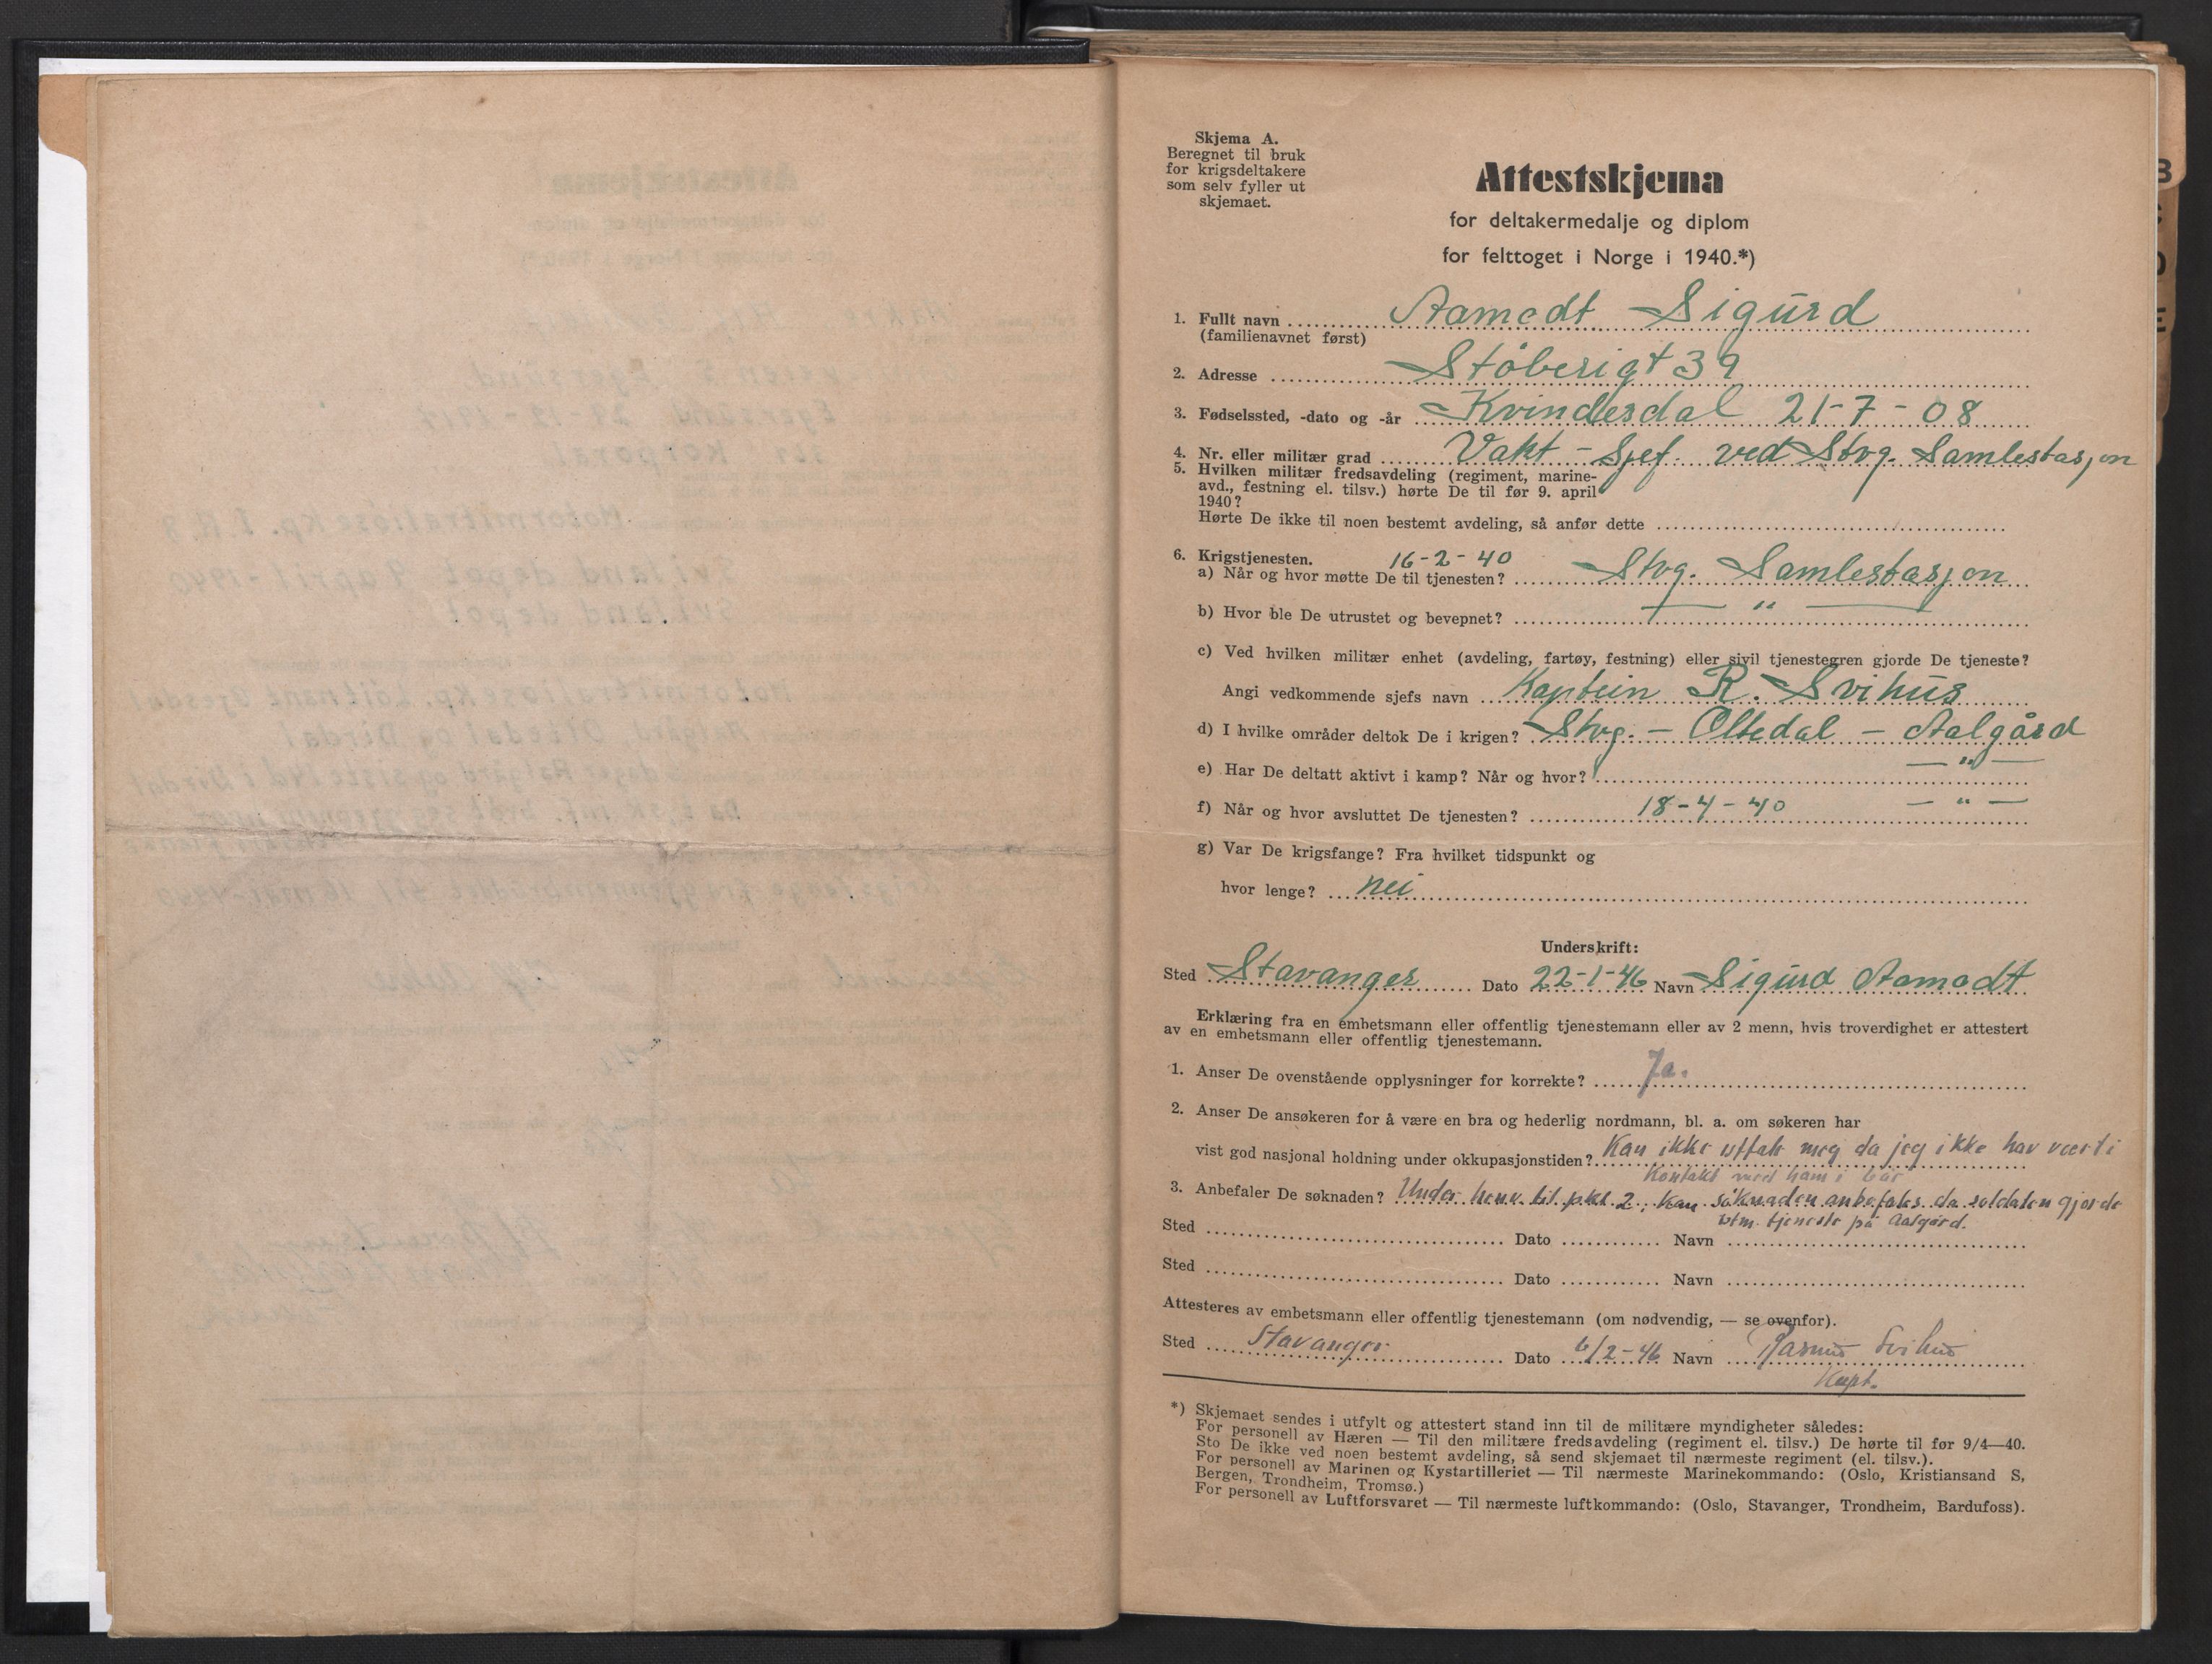 Skjema A.
Beregnet til bruk
for krigsdeltakere
som selv fyller ut
skjemaet.
Attestskjema
for deltakermedalje og diplom
for felttoget i Norge i 1940.*)
1. Fullt navn Aamodt Sigurd
(familienavnet først)
2. Adresse Støberigt 39
3. Fødselssted, -dato og -år Kvindesdal 21-7-08
4. Nr. eller militær grad Vakt-Sjef. ved Stvg. Samlestasjon
5. Hvilken militær fredsavdeling (regiment, marine-
avd., festning el. tilsv.) hørte De til før 9. april
1940?
Hørte De ikke til noen bestemt avdeling, så anfør dette
6. Krigstjenesten.
a) Når og hvor møtte De til tjenesten? 16-2-40 Stvg. Samlestasjon
b) Hvor ble De utrustet og bevepnet? — " —
c) Ved hvilken militær enhet (avdeling, fartøy, festning) eller sivil tjenestegren gjorde De tjeneste?
Angi vedkommende sjefs navn Kaptein R. Svihus
d) I hvilke områder deltok De i krigen? Stvg. - Oltedal - Aalgård
e) Har De deltatt aktivt i kamp? Når og hvor? — " —
f) Når og hvor avsluttet De tjenesten? 18-4-40 — " —
g) Var De krigsfange? Fra hvilket tidspunkt og
hvor lenge? nei
Underskrift:
Sted Stavanger Dato 22-1-46 Navn Sigurd Aamodt
Erklæring fra en embetsmann eller offentlig tjenestemann eller av 2 menn, hvis troverdighet er attestert
av en embetsmann eller offentlig tjenestemann.
1. Anser De ovenstående opplysninger for korrekte? Ja.
2. Anser De ansøkeren for å være en bra og hederlig nordmann, bl. a. om søkeren har
vist god nasjonal holdning under okkupasjonstiden? Kan ikke uttale meg da jeg ikke har vært i
kontakt med ham i
3. Anbefaler De søknaden? Under henv. til pkt. 2, kan søknaden anbefales da soldaten gjorde
utm. tjeneste på Aalgård.
Sted Dato Navn
Sted Dato Navn
Attesteres av embetsmann eller offentlig tjenestemann (om nødvendig, — se ovenfor).
Sted Stavanger Dato 6/2-46 Navn Rasmus Svihus
Kapt.
*) Skjemaet sendes i utfylt og attestert stand inn til de militære myndigheter således:
For personell av Hæren — Til den militære fredsavdeling (regiment el. tilsv.) De hørte til før 9/4—40.
Sto De ikke ved noen bestemt avdeling, så send skjemaet til nærmeste regiment (el. tilsv.).
For personell av Marinen og Kystartilleriet — Til nærmeste Marinekommando: (Oslo, Kristiansand S,
Bergen, Trondheim, Tromsø.)
For personell av Luftforsvaret — Til nærmeste luftkommando: (Oslo, Stavanger, Trondheim, Bardufoss).